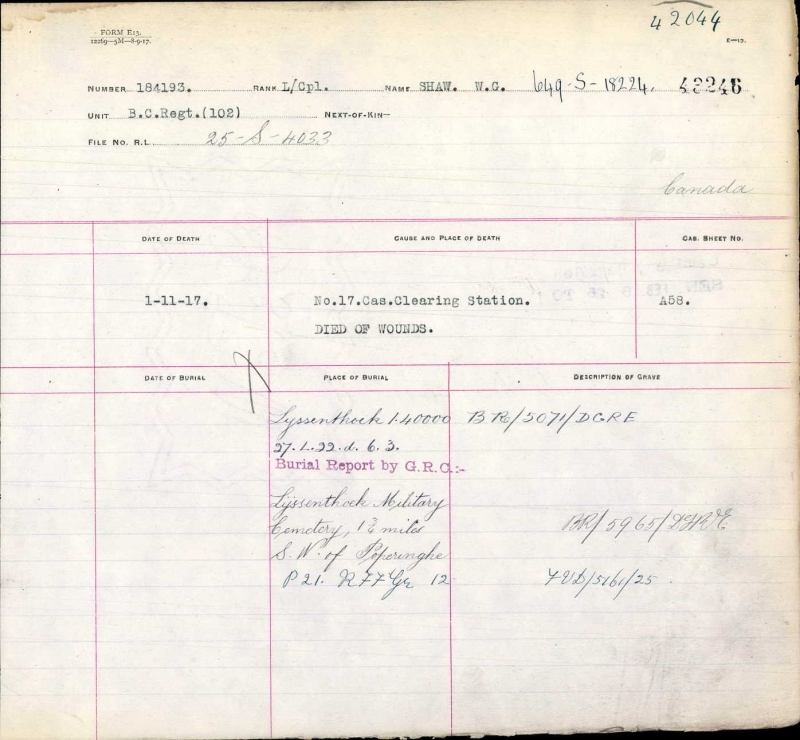 42044
FORM E13.
12269—5M—8-9-17.
E—13.
NUMBER 184193. RANK L/Cpl. NAME SHAW. W.G. 649-S-18224. 43246
UNIT B.C.Regt.(102) NEXT-OF-KIN—
FILE NO. R.L. 25-S-4033
Canada
DATE OF DEATH CAUSE AND PLACE OF DEATH CAS. SHEET NO.
1-11-17. No.17.Cas.Clearing Station. A58.
DIED OF WOUNDS.
DATE OF BURIAL PLACE OF BURIAL DESCRIPTION OF GRAVE
Lyssenthoek 1.40000 BR/5071/DGRE
27.L.22.d.6.3.
Burial Report by G.R.C:-
Lijssenthoek Military
Cemetery, 1¾ miles BR/5965/DGR&E
S.W. of Poperinghe
P 21. R FF Gr 12 FVD/5161/25.